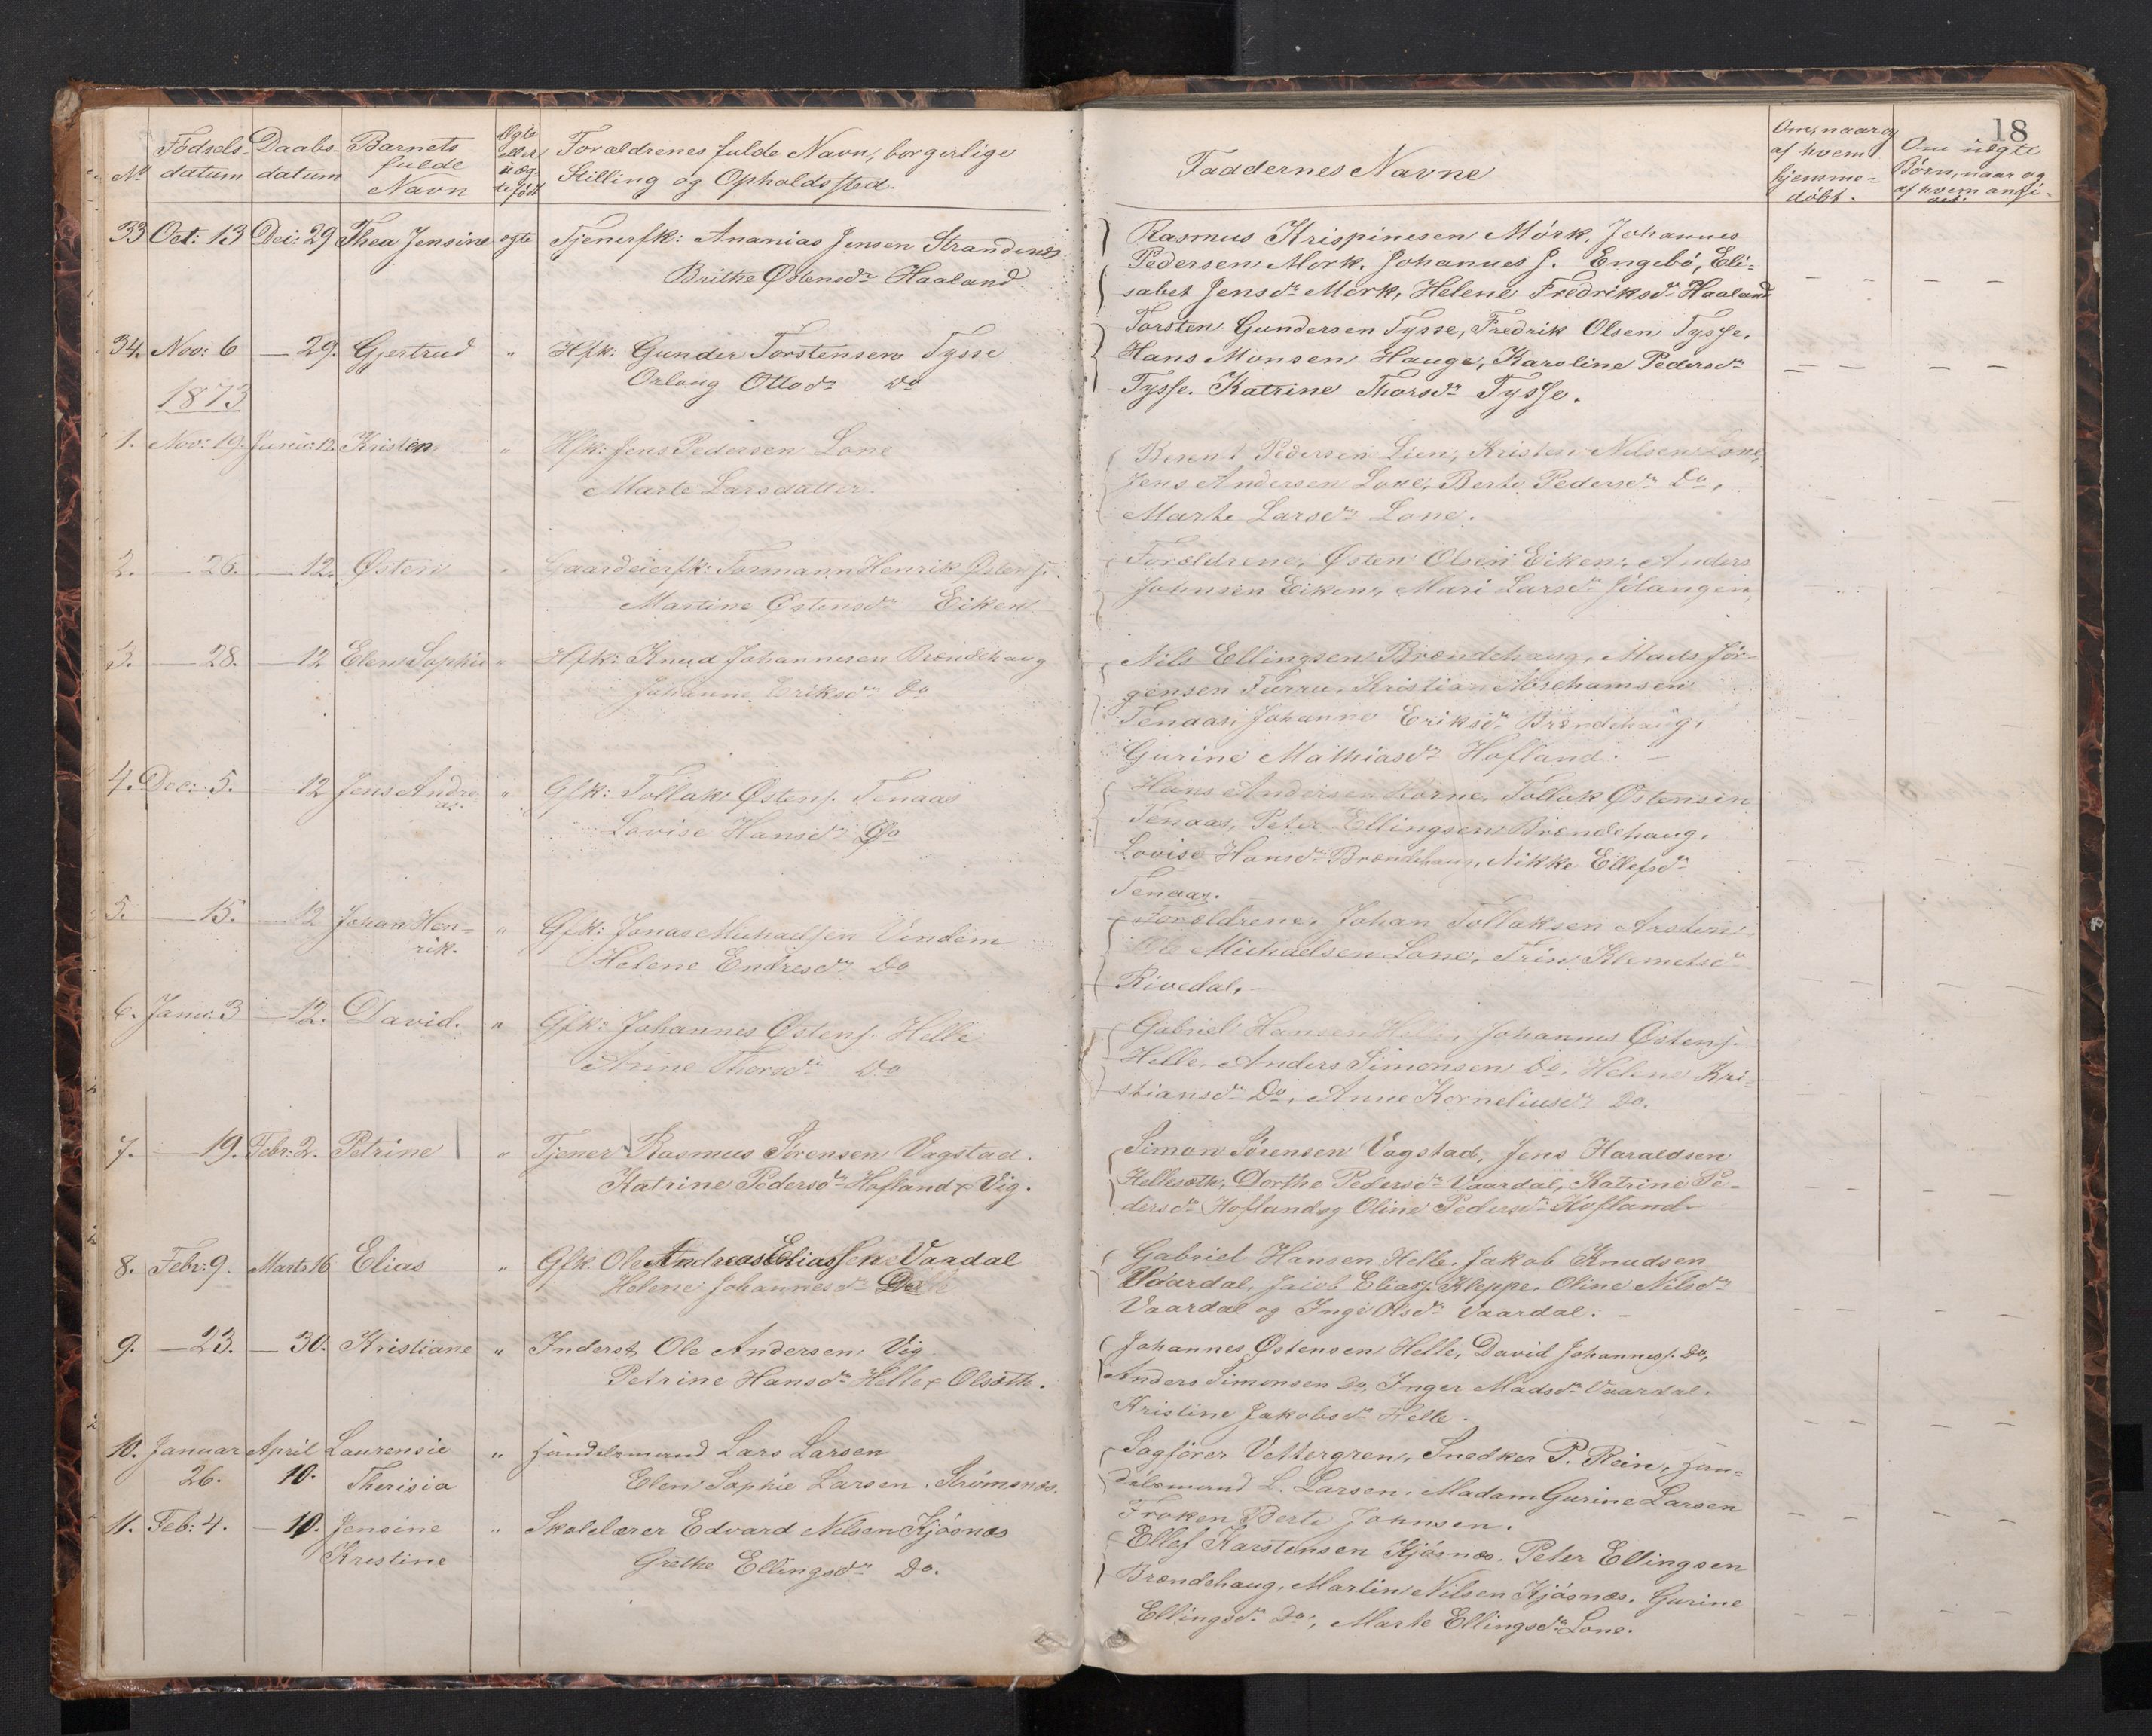 18
No
Fødsels
datum
Daabs-
datum
Barnets
fulde
Navn
Ægte
eller
uæg-
te født
Forældrenes fulde Navn, borgerlige
Stilling og Opholdssted.
Faddernes Navne
Om, naar og
af hvem
hjemme-
döbt.
Om uægte
Börn, naar og
af hvem angi-
vet.
33 Oct: 13 Dec: 29 Thea Jensine ægte Tjenerfk: Ananias Jensen Strandenæs
Brithe Østensdr Haaland
Rasmus Krispinesen Mörk, Johannes
Pedersen Mörk. Johannes J. Engebö, Eli-
sabet Jensdr Mörk, Helene Fredriksdr Haaland
34. Nov: 6 — 29. Gjertrud " Hfk: Gunder Torstensen Tysse
Orlaug Ottodr Do
Torsten Gundersen Tysse, Fredrik Olsen Tysse,
Hans Monsen Hauge, Karoline Pedersdr
Tysse. Katrine Thorsdr Tysse.
1873
1. Nov: 19. Janu: 12. Kristen " Hfk: Jens Pedersen Lone
Marte Larsdatter.
Berent Pedersen Lien, Kristen Nilsen Lone,
Jens Andersen Lone, Berte Pedersdr Do,
Marte Larsdr Lone.
2. — 26. — 12. Østen " Gaardeierfk: Formann Henrik Østens.
Martine Østensdr Eiken
Forældrene, Østen Olsen Eiken, Anders
Johnsen Eiken, Mari Larsdr Jölangen,
3. — 28. — 12 Elen Sophie " Hfk: Knud Johannesen Brændehaug
Johanne Eriksdr Do
Nils Ellingsen Brændehaug, Mads Jör-
gensen Furru, Kristian Abrehamsen
Tenaas, Johanne Eriksdr Brændehaug,
Gurine Mathiasdr Hofland. —
4. Dec: 5. — 12 Jens Andre-
as. " Gfk: Tollak Østens. Tenaas
Lovise Hansdr Do
Hans Andersen Horne, Tollak Østensen
Tenaas, Peter Ellingsen Brændehaug,
Lovise Hansdr Brændehaug, Nikke Ellefsdr
Tenaas.
5. — 15. — 12 Johan Hen-
rik. " Gfk: Jonas Michaelsen Vindem
Helene Endresdr Do
Forældrene, Johan Tollaksen Arsten
Ole Michaelsen Lone, Trine Klemetsdr
Rivedal, —
6. Janu: 3 — 12. David. " Gfk: Johannes Østens. Helle
Anne Thorsdr Do
Gabriel Hansen Helle, Johannes Østens.
Helle, Anders Simonsen Do, Helene Kri-
stiansdr Do, Anne Korneliusdr Do.
7. — 19. Febr: 2. Petrine " Tjener Rasmus Sörensen Vagstad.
Katrine Pedersdr Hofland x Vig.
Simon Sörensen Vagstad, Jens Haraldsen
Hellesæth, Dorthe Pedersdr Vaardal, Katrine Pe-
dersdr Hofland og Oline Pedersdr Hofland
8. Febr: 9. Marts 16 Elias " Gfk: Ole Andreas Eliassen Vaardal
Helene Johannesdr Do
Gabriel Hansen Helle, Jakob Knudsen
Vaardal, Jacob Elias. Kleppe, Oline Nilsdr
Vaardal og Inge Olsdr Vaardal. —
9. — 23. — 30. Kristiane " Inderst Ole Andersen Vig
Petrine Hansdr Helle x Olsæth.
Johannes Østensen Helle, David Johanness. Do,
Anders Simonsen Do, Inger Madsdr Vaardal,
Kristine Jakobsdr Helle.
10. Januar April Laurensie " Handelsmand Lars Larsen
26. 10. Therisia Elen Sophie Larsen, Strömsnæs.
Sagförer Vettergren, Snedker P. Rein, Han-
delsmand L. Larsen, Madam Gurine Larsen
Fröken Berte Johnsen.
11. Feb: 4. — 10. Jensine " Skolelærer Edvard Nilsen Kjösnæs
Kristine Grethe Ellingsdr Do.
Ellef Karstensen Kjösnæs, Peter Ellingsen
Brændehaug, Martin Nilsen Kjösnæs, Gurine
Ellingsdr Do, Marte Ellingsdr Lone.